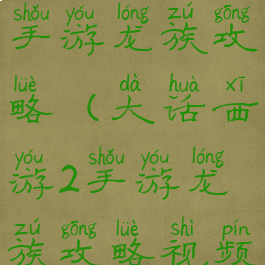 shǒu yóu lóng zú gōng
手游龙族攻
lüè dà huà xī
略(大话西
yóu shǒu yóu lóng
游2手游龙
zú gōng lüè shì pín
族攻略视频